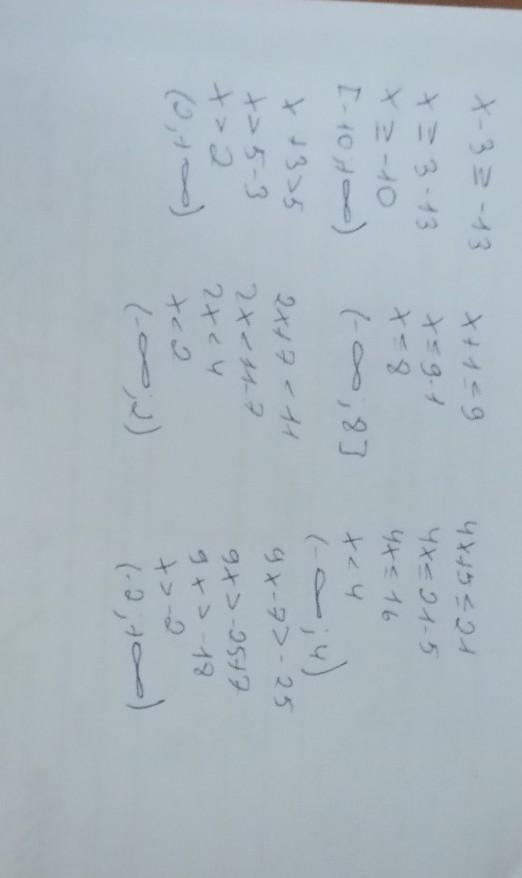 x-3≥-13
x≥3-13
x≥-10
[-10,+∞)
x+1≤9
x≤9-1
x≤8
(-∞;8]
4x+5≤21
4x≤21-5
4x≤16
x<4
(-∞;4)
x+3>5
x>5-3
x>2
(2,+∞)
2x+7<11
2x<11-7
2x<4
x<2
(-∞;2)
9x-7>-25
9x>-25+7
9x>-18
x>-2
(-2;+∞)